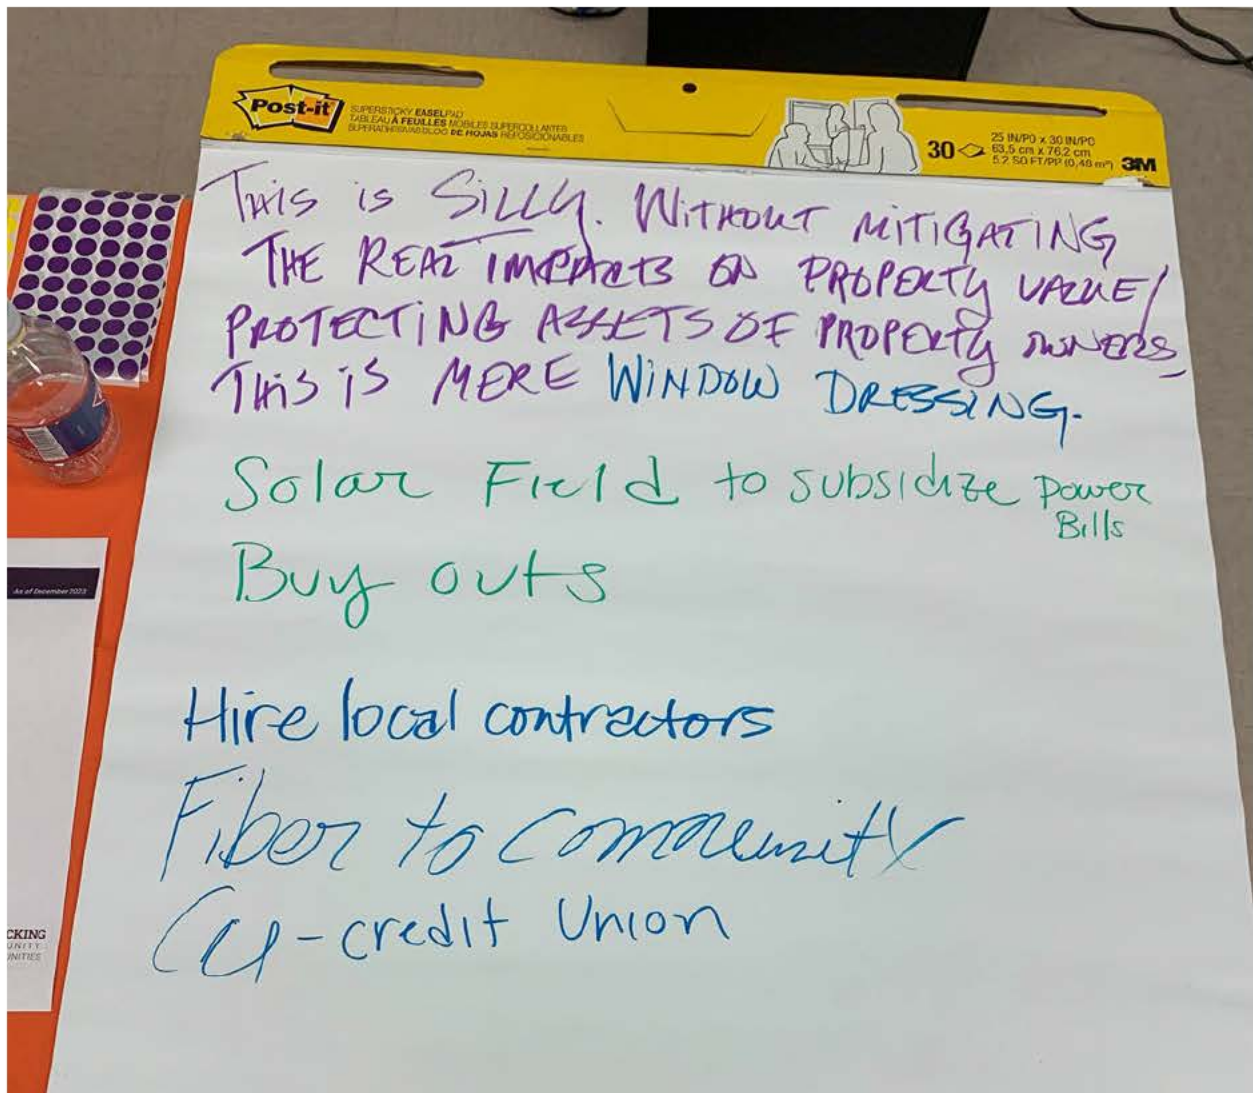 Post-it
SUPERSTICKY EASEL PAD
TABLEAU À FEUILLES MOBILES SUPERCOLLANTES
SUPERADHESIVAS BLOC DE HOJAS REPOSICIONABLES
30
25 IN/PO x 30 IN/PO
63,5 cm x 76,2 cm
5.2 SQ FT/PP (0,48 m²)
3M
THIS iS SiLLY. WITHOUT MITIGATING
THE REAL IMPACTS ON PROPERTY VALUE/
PROTECTING ASSETS OF PROPERTY OWNERS,
THIS iS MERE WINDOW DRESSING.
Solar Field to subsidize power
Bills
Buy outs
Hire local contractors
Fiber to community
CU-credit Union
As of December 2023
CKING
UNITY
UNITIES